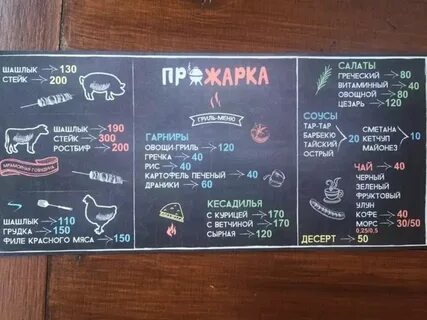 ШАШЛЫК → 130
СТЕЙК → 200
ШАШЛЫК → 190
СТЕЙК → 300
РОСТБИФ → 200
МРАМОРНАЯ ГОВЯДИНА
ШАШЛЫК → 110
ГРУДКА → 150
ФИЛЕ КРАСНОГО МЯСА → 150
ПРОЖАРКА
ГРИЛЬ-МЕНЮ
ГАРНИРЫ
ОВОЩИ-ГРИЛЬ → 120
ГРЕЧКА → 40
РИС → 40
КАРТОФЕЛЬ ПЕЧЕНЫЙ → 40
ДРАНИКИ → 60
КЕСАДИЛЬЯ
С КУРИЦЕЙ → 170
С ВЕТЧИНОЙ → 170
СЫРНАЯ → 120
САЛАТЫ
ГРЕЧЕСКИЙ → 80
ВИТАМИННЫЙ → 40
ОВОЩНОЙ → 80
ЦЕЗАРЬ → 120
СОУСЫ
ТАР-ТАР
БАРБЕКЮ
ТАЙСКИЙ
ОСТРЫЙ
20
СМЕТАНА
КЕТЧУП
МАЙОНЕЗ
10
ЧАЙ → 40
ЧЕРНЫЙ
ЗЕЛЕНЫЙ
ФРУКТОВЫЙ
УЛУН
КОФЕ → 40
МОРС → 30/50
0,25/0,5
ДЕСЕРТ → 50